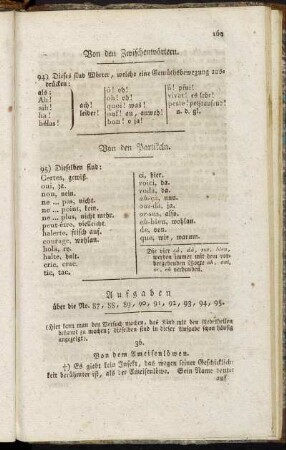 169
Von den Zwischenwörtern.
94) Dieses sind Wörter, welche eine Gemüthsbewegung aus-
drücken:
als:
Ah!
aih!
ha!
hélas!
ach!
leider!
ô! oh!
oh! oh!
quoi! was!
ouf! au, auweh!
bon! o ja!
fi! pfui!
vivat! es lebe!
peste! potztausend!
u. d. gl.
Von den Partikeln.
95) Dieselben sind:
Certes, gewiß.
oui, ja.
non, nein.
ne ... pas, nicht.
ne ... point, kein.
ne ... plus, nicht mehr.
peut-être, vielleicht.
halerte, frisch auf.
courage, wohlan.
hola, he.
halte, halt.
cric, crac.
tic, tac.
ci, hier.
voici, da.
voilà, da.
non, nein.
oui-dà, ja.
or-sus, also.
eh-bien, wohlan.
de, von.
que, wie, warum.
Die vier
werden immer mit dem vor-
hergehenden Worte
verbunden.
Aufgaben
über die No. 87, 88, 89, 90, 91, 92, 93, 94, 95.
(Hier kann man den Versuch machen, das Kind mit den
bekannt zu machen; dieselben sind in dieser Aufgabe
angezeigt.
36.
Von dem Ameisenlöwen.
(†) Es giebt kein Insekt, das wegen seiner Geschicklich-
keit berühmter ist, als der Ameisenlöwe. Sein Name deutet
auf